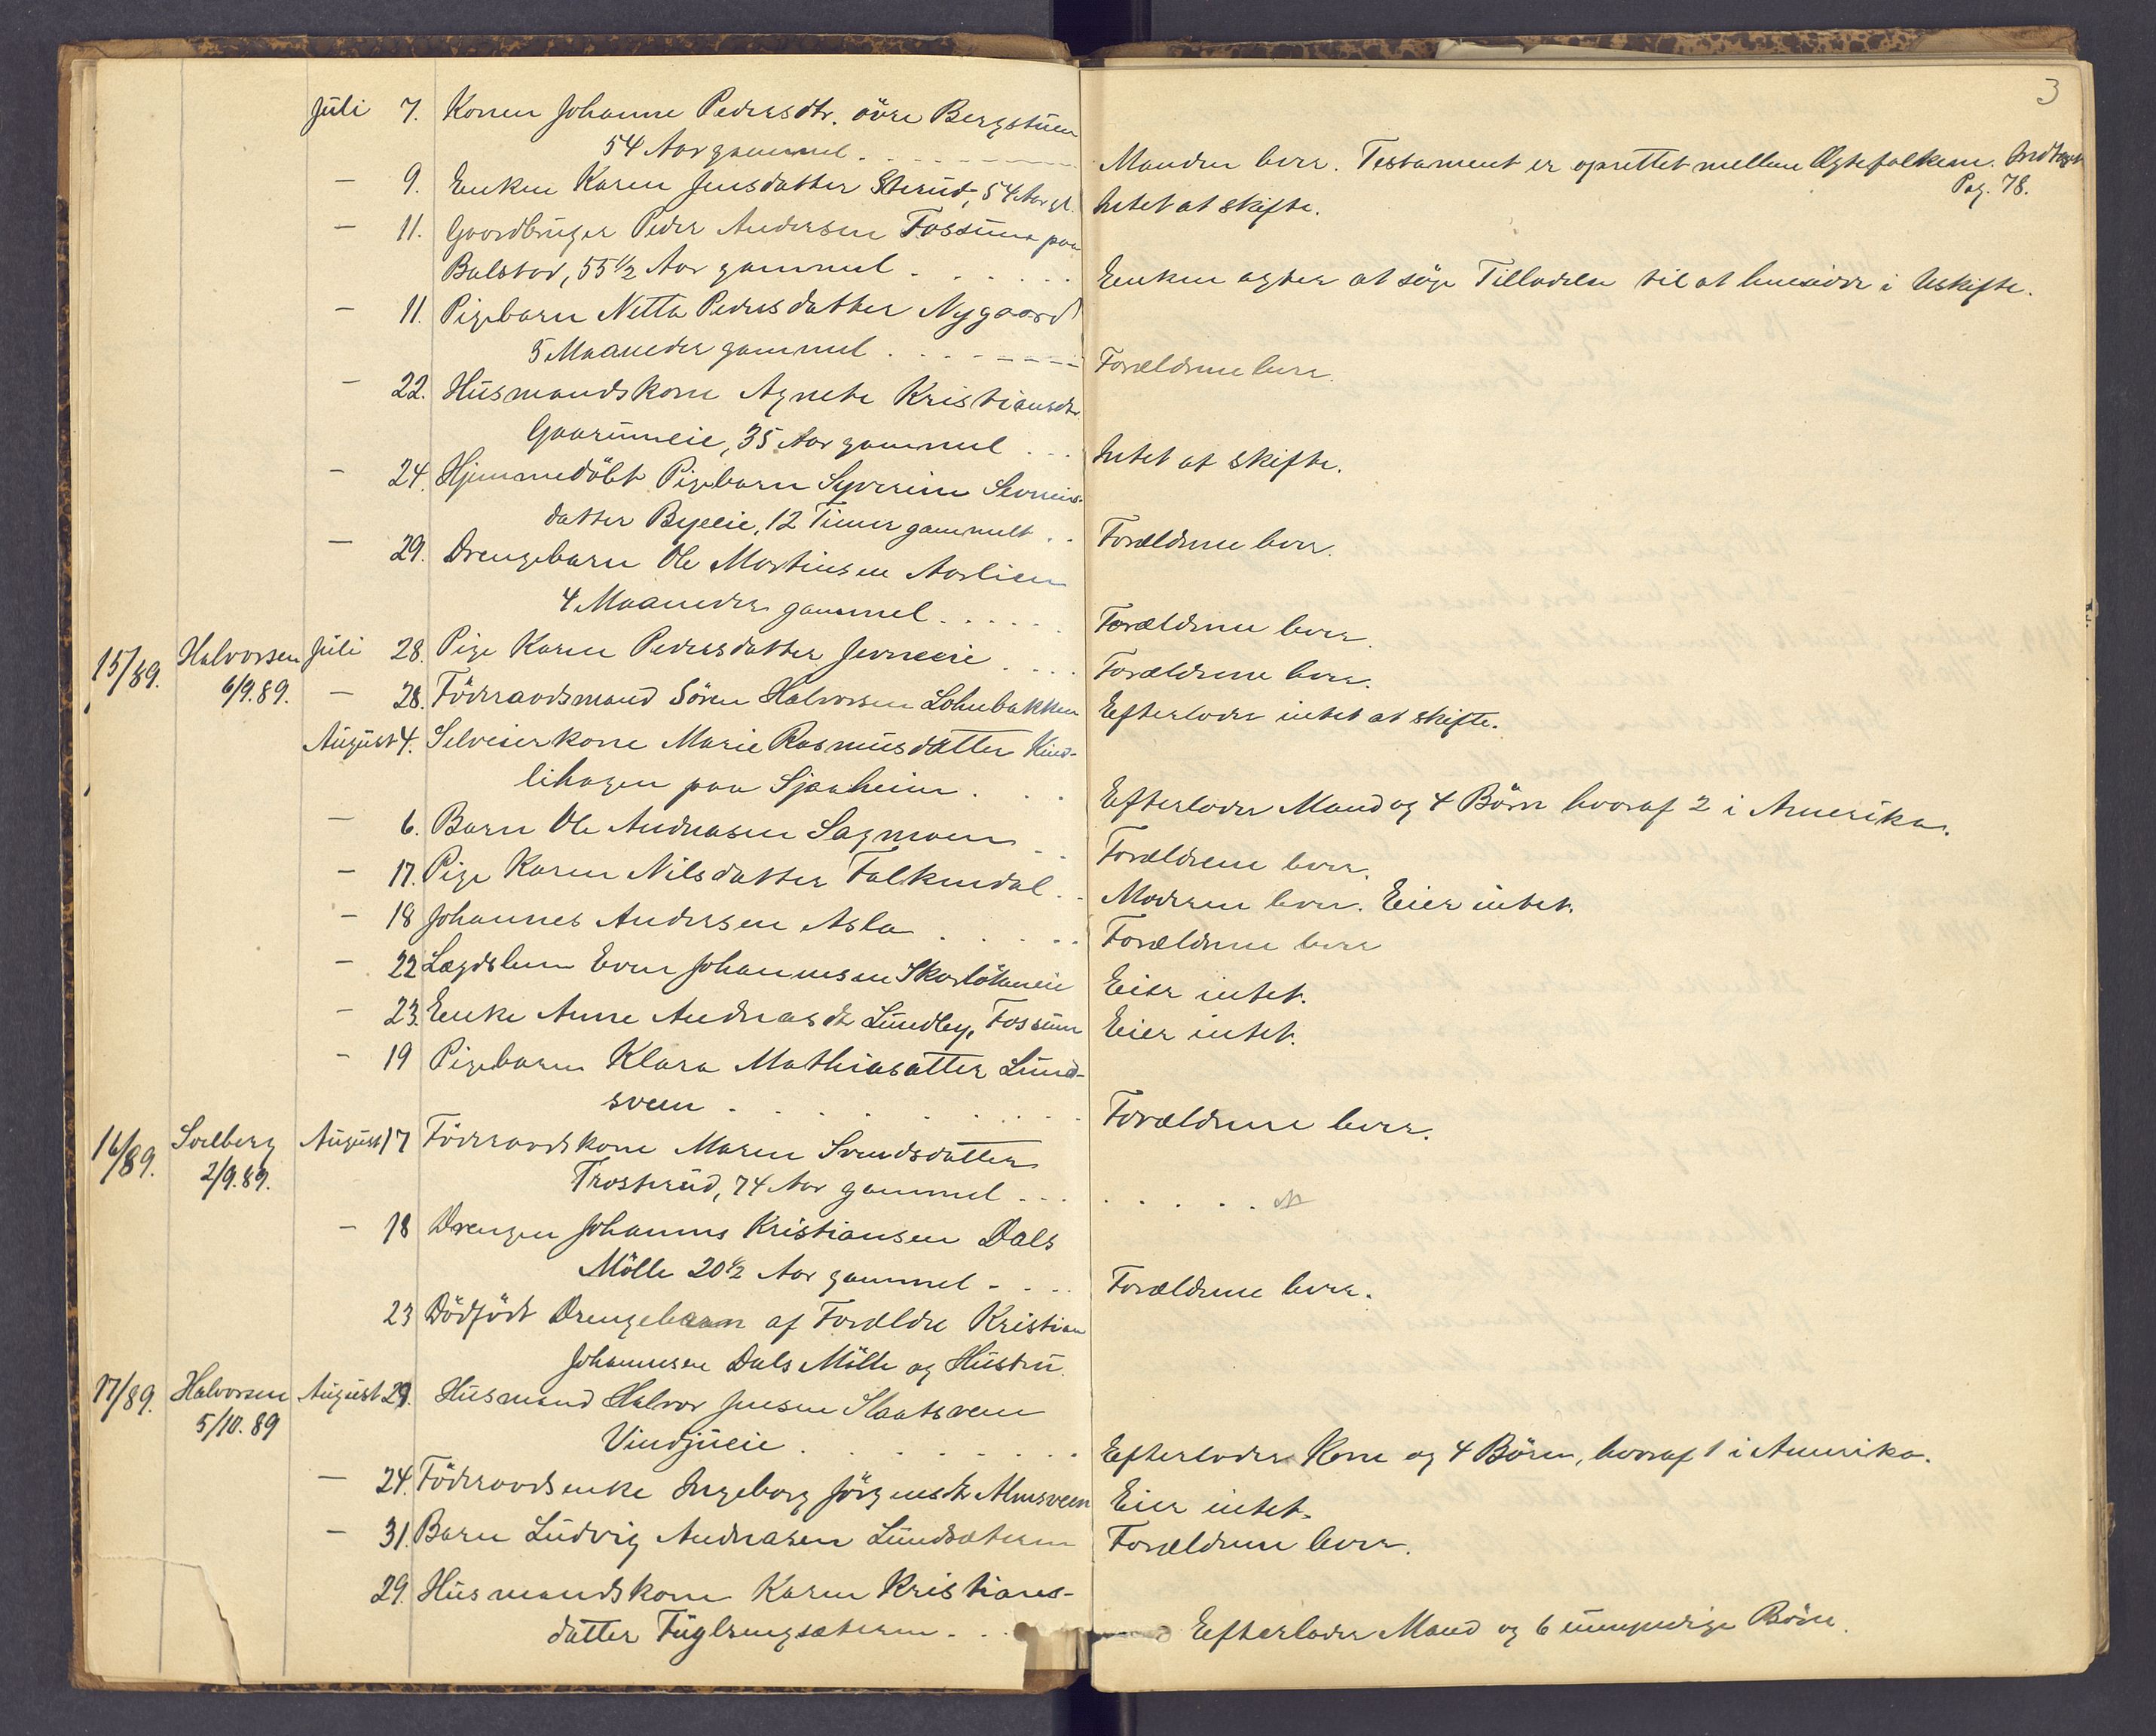 3
Juli 7. Konen Johanne Pedersdtr. övre Bergstuen
54 Aar gammel. Manden lever. Testament er oprettet mellem Ægtefolkene. Indtaget
Pag. 78.
— 9. Enken Karen Jensdatter Sterud, 54 Aar gl. Intet at skifte.
— 11. Gaardbruger Peder Andersen Fossum paa
Balstad, 55 1/2 Aar gammel. Enken agter at söge Tilladelse til at hensidde i Uskifte.
— 11. Pigebarn Netta Pedersdatter Nygaard
5 Maaneder gammel. Forældrene lever.
— 22. Husmandskone Agnete Kristiansdtr
Gaarumeie, 35 Aar gammel. Intet at skifte.
— 24. Hjemmedöbt Pigebarn Syverine
datter Byeeie, 12 Timer gammelt. Forældrene lever.
— 29. Drengebarn Ole Martinsen Aaslien
4 Maaneder gammel. Forældrene lever.
15/89. Halvorsen Juli 28. Pige Karen Pedersdatter Forældrene lever.
6/9.89. — 28. Föderaadsmand Sören Halvorsen Lohnbakken Efterlader intet at skifte.
August 4. Selveierkone Marie Rasmusdatter Kind-
lihagen paa Sjaaheim. Efterlader Mand og 4 Börn hvoraf 2 i Amerika.
— 6. Barn Ole Andreasen Sagmoen Forældrene lever.
— 17. Pige Karen Nilsdatter Falkendal. Moderen lever. Eier intet.
— 18 Johannes Andersen Asla Forældrene lever
— 22 Lægdslem Even Johannesen Eier intet.
— 23. Enke Anne Andreasdtr Lundby, Fossum Eier intet.
— 19 Pigebarn Klara Mathiasatter Lund-
sveen. Forældrene lever.
16/89. Solberg August 17 Föderaadskone Maren Svendsdatter
2/9.89. Trosterud, 74 Aar gammel
— 18 Drengen Johannes Kristiansen Dals
Mölle 20 1/2 Aar gammel Forældrene lever.
23 Dödfödt Drengebarn af Forældre Kristian
Johannesen Dals Mölle og Hustru.
17/89. Halvorsen August 29. Husmand Halvor Jensen Slaatsveen
5/10.89 Vindjueie. Efterlader Kone og 4 Börn, hvoraf 1 i Amerika.
— 24. Föderaadsenke Ingeborg Jörgensdtr Almsveen Eier intet.
— 31. Barn Ludvig Andreasen Lundsæteren Forældrene lever.
29. Husmandskone Karen Kristians-
datter Fuglengsæteren. Efterlader Mand og 6 umyndige Börn.